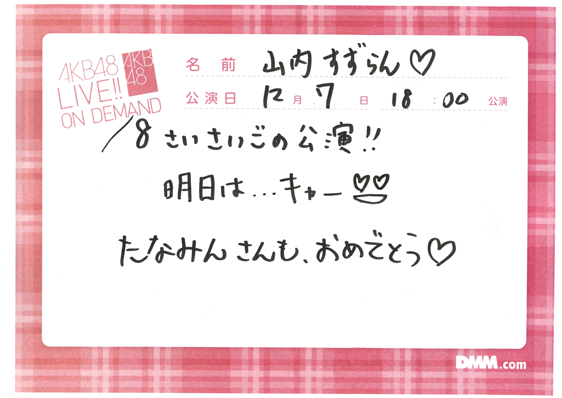 AKB48
LIVE!!
ON DEMAND
AKB
48
名前 山内すずらん♡
公演日 12月7日 18:00 公演
18さいさいごの公演!!
明日は...キャー
たなみんさんも、おめでとう♡
DMM.com